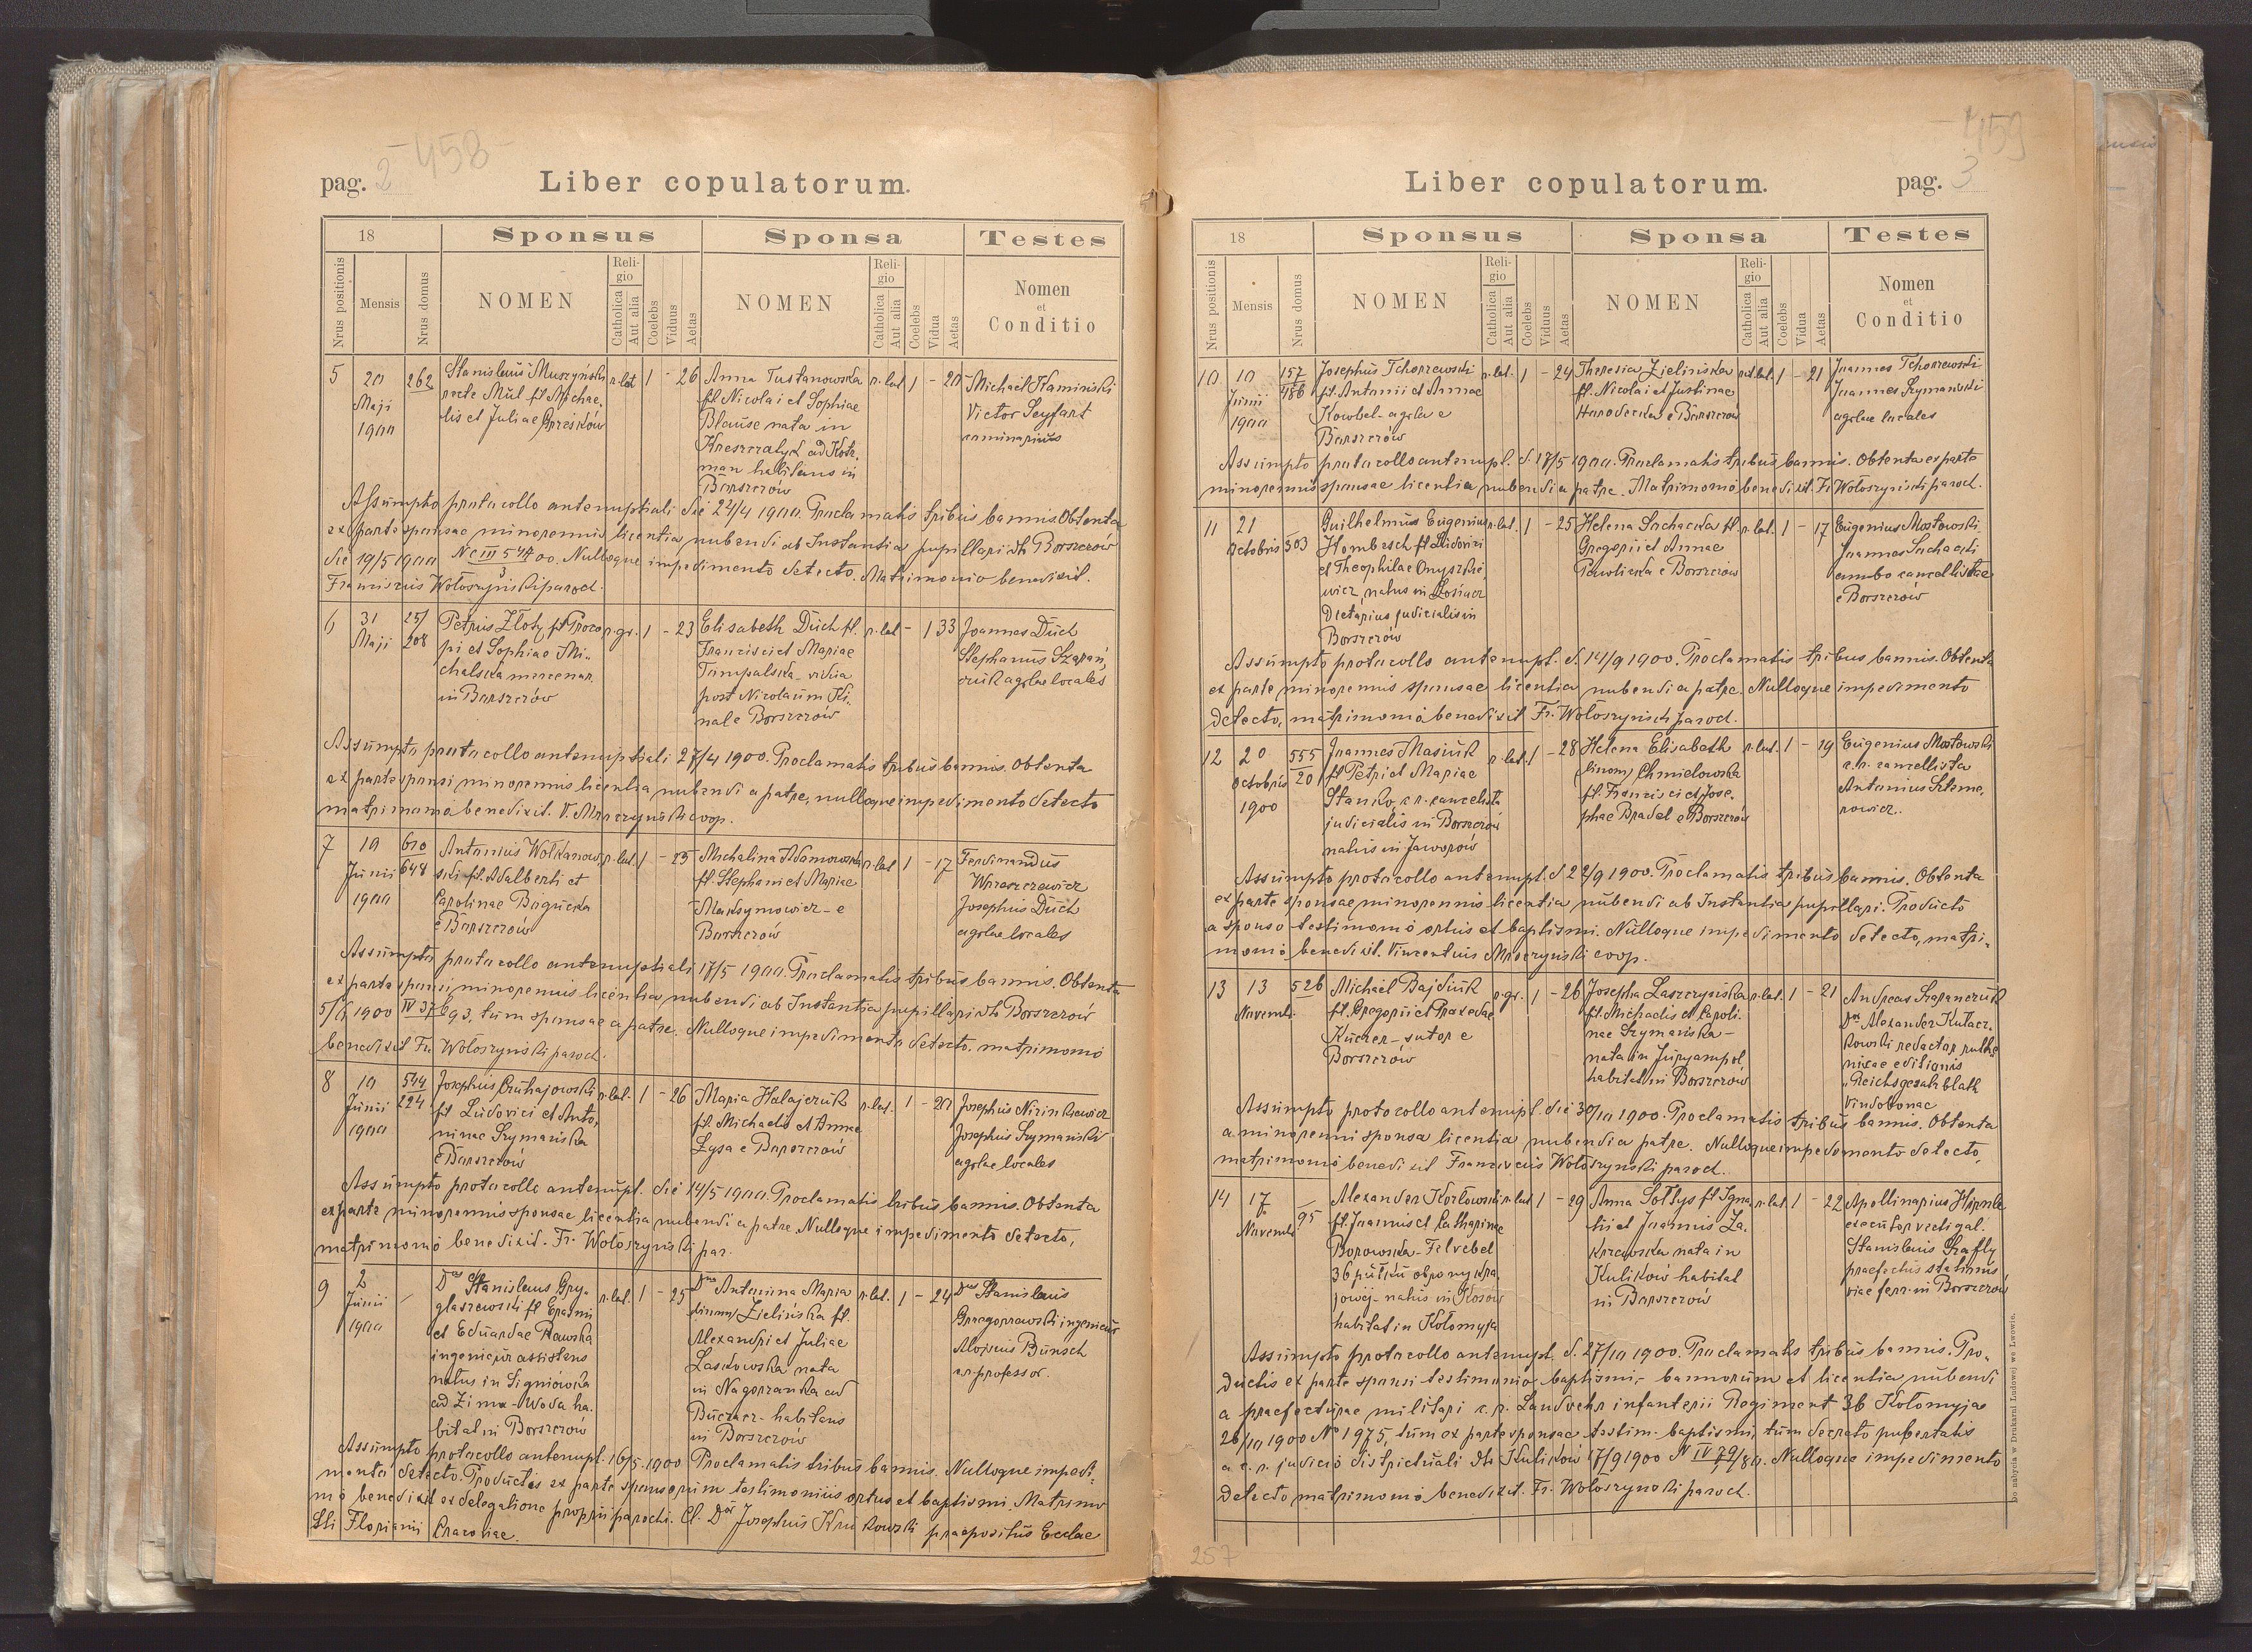 pag. 2
458
Liber copulatorum.
18
Sponsus
Sponsa
Testes
Nrus positionis
Mensis
Nrus domus
NOMEN
Religio
Catholica
Aut alia
Coelebs
Viduus
Aetas
NOMEN
Religio
Catholica
Aut alia
Coelebs
Vidua
Aetas
Nomen
et
Conditio
5 20 262 Stanislaus Muszyński r. lat 1 - 26 Anna Tustanowska r. lat 1 - 20 Michael Kamiński
Maji recte Mul fl. Michae- fl. Nicolai et Sophiae Victor Seyfart
1900 lis et Juliae Blause nata in caminarius
Kreszczatyk ad Kotz-
man habitans in
Borszczów
Assumpto protocollo antenuptiali die 22/4 1900. Proclamatis tribus bannis. Obtenta
ex parte sponsae minorennis licentia nubendi ab Instantia pupillari dto Borszczów
die 19/5 1900 Nc III 54/00. Nulloque impedimento detecto. Matrimonio benedixit.
3
Franciscus Wołoszyński paroch.
6 31 25/ Petrus Złoty fl. Proco- r. gr. 1 - 23 Elisabeth Duch fl. r. lat - 1 33 Joannes Duch
Maji 208 pi et Sophiae Mi- Francisci et Mariae Stephanus Szarań-
chalska mercenar. Tumpalska - vidua czuk agrlae locales
in Borszczów post Nicolaum Ki-
nal e Borszczów
Assumpto protocollo antenuptiali 27/4 1900. Proclamatis tribus bannis. Obtenta
ex parte sponsi minorennis licentia nubendi a patre, nulloque impedimento detecto
matrimonio benedixit. V. Mroczyński coop.
7 10 610 Antonius Wołkanow- r. lat. 1 - 25 Michalina Adamowska r. lat 1 - 17 Ferdinandus
Junii 648 ski fl. Adalberti et fl. Stephani et Mariae
1900 Carolinae Bagucka Maksymowicz - e Josephus Duch
e Borszczów Borszczów agrlae locales
Assumpto protocollo antenuptiali 17/5 1900. Proclamatis tribus bannis. Obtenta
ex parte sponsi minorennis licentia nubendi ab Instantia pupillari dto Borszczów
5/6 1900 IV 37/93, tum sponsae a patre. Nulloque impedimento detecto, matrimonio
benedixit Fr. Wołoszyński paroch.
8 10 544 Josephus r. lat. 1 - 26 Maria Hałajczuk r. lat. 1 - 20 Josephus
Junii 224 fl. Ludovici et Anto- fl. Michaelis et Annae Josephus Szymański
1900 ninae Szymańska Łysa e Borszczów agrlae locales
e Borszczów
Assumpto protocollo antenupt. die 14/5 1900. Proclamatis tribus bannis. Obtenta
ex parte minorennis sponsae licentia nubendi a patre. Nulloque impedimento detecto,
matrimonio benedixit. Fr. Wołoszyński par.
9 2 - Dus Stanislaus Gry- r. lat. 1 - 25 Dna Antonina Maria r. lat. 1 - 24 Dus Stanislaus
Junii glaszewski fl. Erasmi (binom) Zielińska fl. ingenieur
1900 et Eduardae Rawska Alexandri et Juliae Aloisius Bunsch
ingenieur assistens Laskowska nata professor.
natus in Signiówka in Nagorzanka ad
ad Zimna-Woda ha- Buczacz - habitans
bitat in Borszczów in Borszczów
Assumpto protocollo antenupt. 16/5 1900 Proclamatis tribus bannis. Nulloque impedi-
mento detecto. Productis ex parte sponsorum testimoniis ortus et baptismi. Matrimo-
nio benedixit ex delegatione proprii parochi. Cl. Dus Josephus Krukowski praepositus Ecclae
Sti Floriani Cracoviae.
459
Liber copulatorum.
pag. 3
18
Sponsus
Sponsa
Testes
Nrus positionis
Mensis
Nrus domus
NOMEN
Religio
Catholica
Aut alia
Coelebs
Viduus
Aetas
NOMEN
Religio
Catholica
Aut alia
Coelebs
Vidua
Aetas
Nomen
et
Conditio
10 10 157 Josephus Tchorzewski r. lat. 1 - 24 Theresia Zielińska r. lat. 1 - 21 Joannes Tchorzewski
Junii 186 fl. Antonii et Annae fl. Nicolai et Justinae Joannes Szymański
1900 Kowbel - agrla e Harodecka e Borszczów agrlae locales
Borszczów
Assumpto protocollo antenupt. d. 17/5 1900. Proclamatis tribus bannis. Obtenta ex parte
minorennis sponsae licentia nubendi a patre. Matrimonio benedixit. Fr. Wołoszyński paroch.
11 21 303 Guilhelmus Eugenius r. lat. 1 - 25 Helena Suchacka fl. r. lat. 1 - 17 Eugenius Mostowski
Octobris Hombesch fl. Ludovici Gregorii et Annae Joannes Suchacki
et Theophilae Onyszkie- Pawlicka e Borszczów ambo cancellistae
wicz, natus in Łosiacz e Borszczów
Dietarius judicialis in
Borszczów
Assumpto protocollo antenupt. d. 14/9 1900. Proclamatis tribus bannis. Obtenta
ex parte minorennis sponsae licentia nubendi a patre. Nulloque impedimento
detecto, matrimonio benedixit Fr. Wołoszyński paroch.
12 20 555 Joannes Masiuk r. lat. 1 - 28 Helena Elisabeth r. lat. 1 - 19 Eugenius Mostowski
Octobris 20 fl. Petri et Mariae (binom) Chmielowska c. r. cancellista
1900 Stanko, c. r. cancelista fl. Francisci et Jose- Antonius
judicialis in Borszczów phae Bradel e Borszczów
natus in Jaworów
Assumpto protocollo antenupt. d 22/9 1900. Proclamatis tribus bannis. Obtenta
ex parte sponsae minorennis licentia nubendi ab Instantia pupillari. Producto
a sponso testimonio ortus et baptismi. Nulloque impedimento detecto, matri-
monio benedixit. Vincentius Mroczyński coop.
13 13 526 Michael Bajduk r. gr. 1 - 26 Josepha Laszczyńska r. lat. 1 - 21 Andreas Szaranczuk
Novembr. fl. Gregorii et Praxedae fl. Michaelis et Caroli- Dr Alexander Kulacz-
Kuczer - sutor e nae Szymańska - kowski redactor ruthe-
Borszczów nata in Juryampol nicae editionis
habitat in Borszczów "Reichsgesetzblatt
Vindobonae
Assumpto protocollo antenupt. die 30/10 1900. Proclamatis tribus bannis. Obtenta
a minorenni sponsa licentia nubendi a patre. Nulloque impedimento detecto,
matrimonio benedixit Franciscus Wołoszyński paroch.
14 17 95 Alexander Kozłowski r. lat 1 - 29 Anna Sołtys fl. Igna- r. lat. 1 - 22 Apollinarius
Novembr. fl. Joannis et Catharinae tii et Joannis Za- executor vectigal.
Borowska - Felvebel nata in Stanislaus Szafly
36 pułku obrony kra- Kulików habitat praefectus stationis
jowej - natus in Kosów in Borszczów viae ferr. in Borszczów
habitat in Kołomyja
Assumpto protocollo antenupt. d. 27/10 1900. Proclamatis tribus bannis. Pro-
ductis ex parte sponsi testimonio baptismi, - bannorum et licentia nubendi
a praefecturae militari c. r. Landwehr infanterii Regiment 36 Kołomyjae
26/10 1900 No 1975, tum ex parte sponsae testim. baptismi, tum decreto pubertatis
a c. r. judicio districtuali dto Kulików 17/9 1900 N IV 79/80. Nulloque impedimento
detecto matrimonio benedixit. Fr. Wołoszyński paroch.
Do nabycia w Drukarni Ludowej we Lwowie.
257